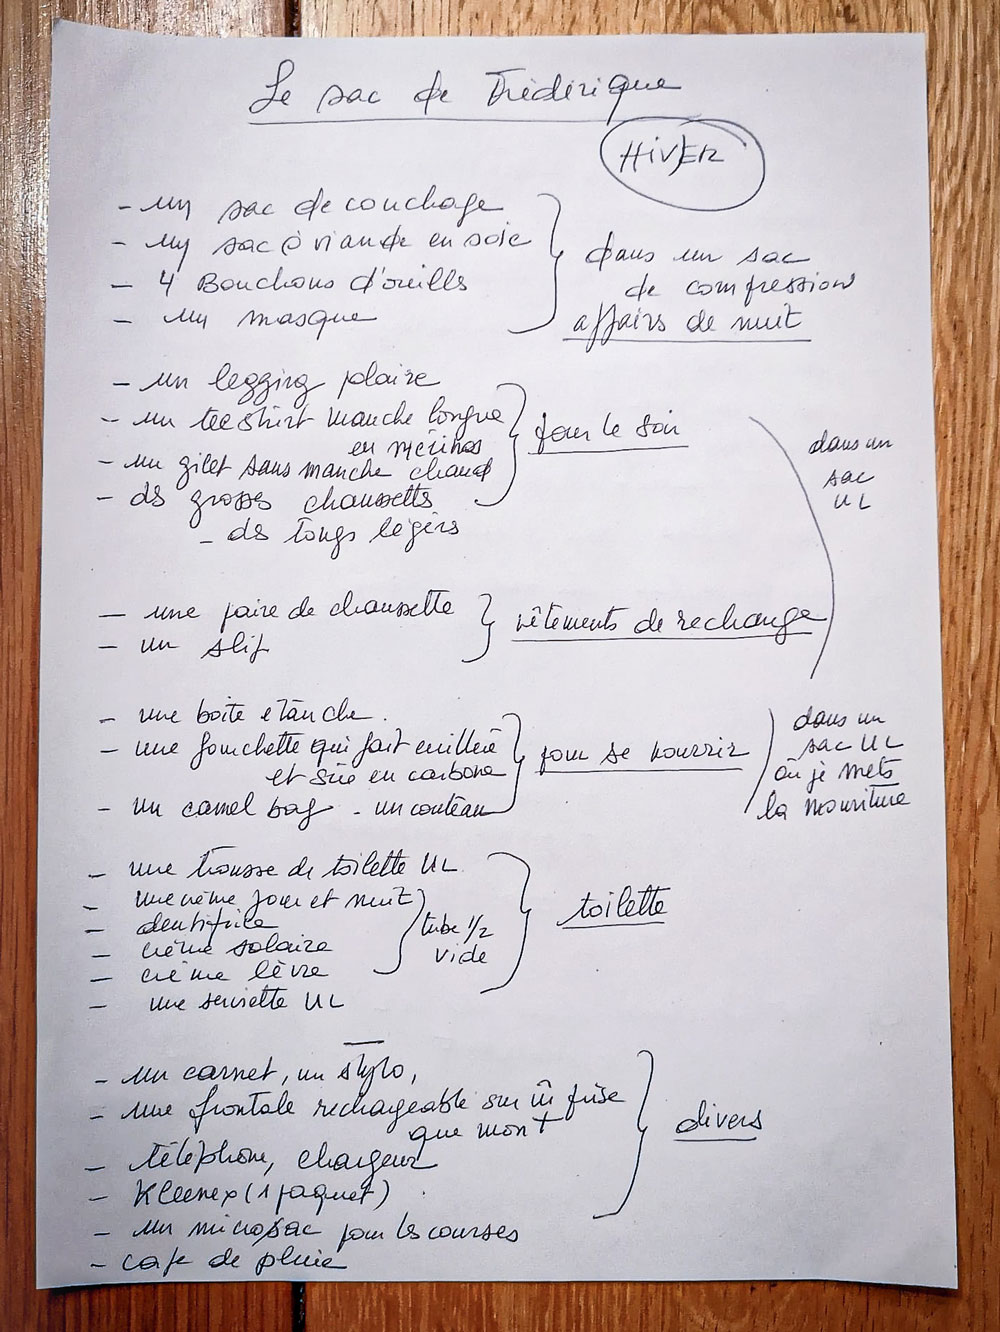 Le sac de Frédérique
HIVER
- un sac de couchage
- un sac à viande en soie
- 4 Bouchons d'oreills
- un masque
dans un sac
de compression
affairs de nuit
- un legging polaire
- un tee shirt manche longue
en mérinos
- un gilet sans manche chaud
- ds grosses chaussetts
- ds tongs légèrs
pour le soir
dans un
sac
UL
- une paire de chaussette
- un slip
vêtements de rechange
- une boite etanche.
- une fourchette qui fait cuillère
et scie en carbone
- un camel bag - un couteau
pour se nourrir
dans un
sac UL
où je mets
la nourriture
- une trousse de toilette UL
- une crème jour et nuit
- dentifrice
- crème solaire
- crème lèvre
- une serviette UL
tube 1/2
vide
toilette
- un carnet, un stylo,
- une frontale rechargeable sur m prise
que mont
- téléphone, chargeur
- Kleenex (1 paquet)
- un microsac pour ls courses
- cape de pluie
divers